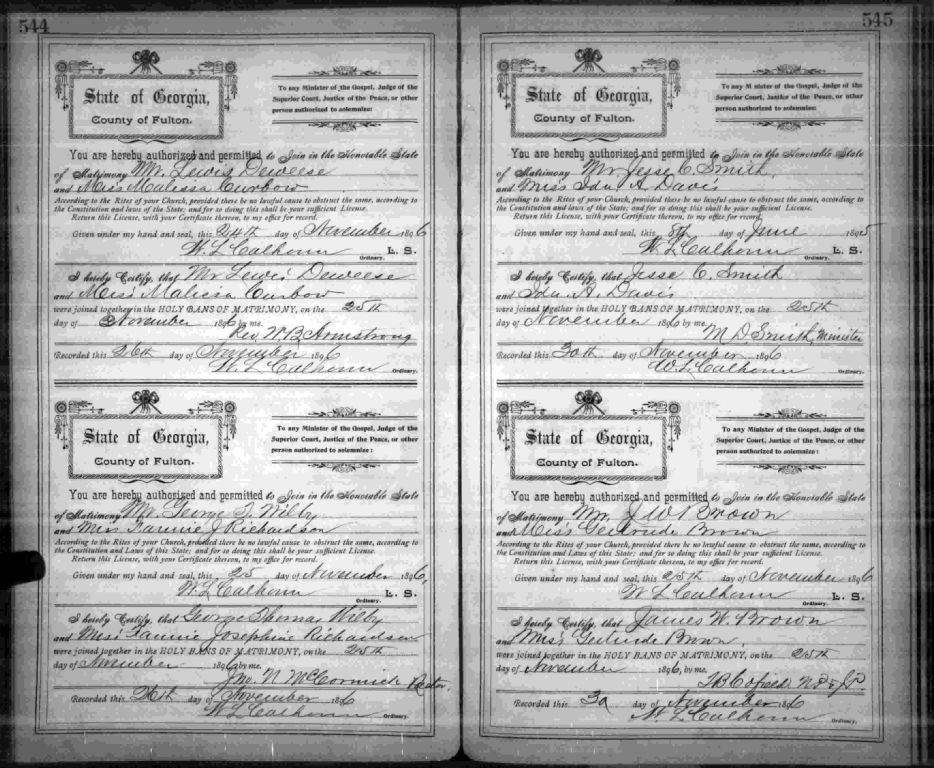 544
State of Georgia,
County of Fulton.
To any Minister of the Gospel, Judge of the
Superior Court, Justice of the Peace, or other
person authorized to solemnize:
You are hereby authorized and permitted to Join in the Honorable State
of Matrimony Mr. Lewis Deweese
and Miss Malissa Curbow
According to the Rites of your Church, provided there be no lawful cause to obstruct the same, according to
the Constitution and laws of the State; and for so doing this shall be your sufficient License.
Return this License, with your Certificate thereon, to my office for record.
Given under my hand and seal, this 24th day of November 1896
W. L. Calhoun L. S.
Ordinary.
I hereby Certify, that Mr Lewis Deweese
and Miss Malissa Curbow
were joined together in the HOLY BANS OF MATRIMONY, on the 25th
day of November 1896 by me.
Rev. W. B. Armstrong
Recorded this 26th day of November 1896
W. L. Calhoun Ordinary.
State of Georgia,
County of Fulton.
To any Minister of the Gospel, Judge of the
Superior Court, Justice of the Peace, or other
person authorized to solemnize:
You are hereby authorized and permitted to Join in the Honorable State
of Matrimony Mr. George T. Wilby
and Miss Fannie J Richardson
According to the Rites of your Church, provided there be no lawful cause to obstruct the same, according to
the Constitution and Laws of this State; and for so doing this shall be your sufficient License.
Return this License, with your Certificate thereon, to my office for record.
Given under my hand and seal, this 25 day of November 1896,
W. L. Calhoun L. S.
Ordinary.
I hereby Certify, that George Thomas Wilby
and Miss Fannie Josephine Richardson
were joined together in the HOLY BANS OF MATRIMONY, on the 25th
day of November 1896 by me.
Jno. N. McCormick Rector.
Recorded this 26th day of November 1896
W. L. Calhoun Ordinary.
545
State of Georgia,
County of Fulton.
To any Minister of the Gospel, Judge of the
Superior Court, Justice of the Peace, or other
person authorized to solemnize:
You are hereby authorized and permitted to Join in the Honorable State
of Matrimony Mr Jesse C. Smith,
and Miss Ida A. Davis
According to the Rites of your Church, provided there be no lawful cause to obstruct the same, according to
the Constitution and laws of the State; and for so doing this shall be your sufficient License.
Return this License, with your Certificate thereon, to my office for record.
Given under my hand and seal, this 5th day of June 1895
W. L. Calhoun L. S.
Ordinary.
I hereby Certify, that Jesse C. Smith
and Ida. A. Davis
were joined together in the HOLY BANS OF MATRIMONY, on the 25th
day of November 1896 by me.
M D Smith, Minister
Recorded this 30th day of November 1896
W. L. Calhoun Ordinary.
State of Georgia,
County of Fulton.
To any Minister of the Gospel, Judge of the
Superior Court, Justice of the Peace, or other
person authorized to solemnize:
You are hereby authorized and permitted to Join in the Honorable State
of Matrimony Mr. J. W. Brown
and Miss Gertrude Brown
According to the Rites of your Church, provided there be no lawful cause to obstruct the same, according to
the Constitution and Laws of this State; and for so doing this shall be your sufficient License.
Return this License, with your Certificate thereon, to my office for record.
Given under my hand and seal, this 25th day of November 1896
W. L. Calhoun L. S.
Ordinary.
I hereby Certify, that James W. Brown
and Miss Gertrude Brown
were joined together in the HOLY BANS OF MATRIMONY, on the 25th
day of November 1896, by me.
N P & J P
Recorded this 30 day of November 1896
W. L. Calhoun Ordinary.